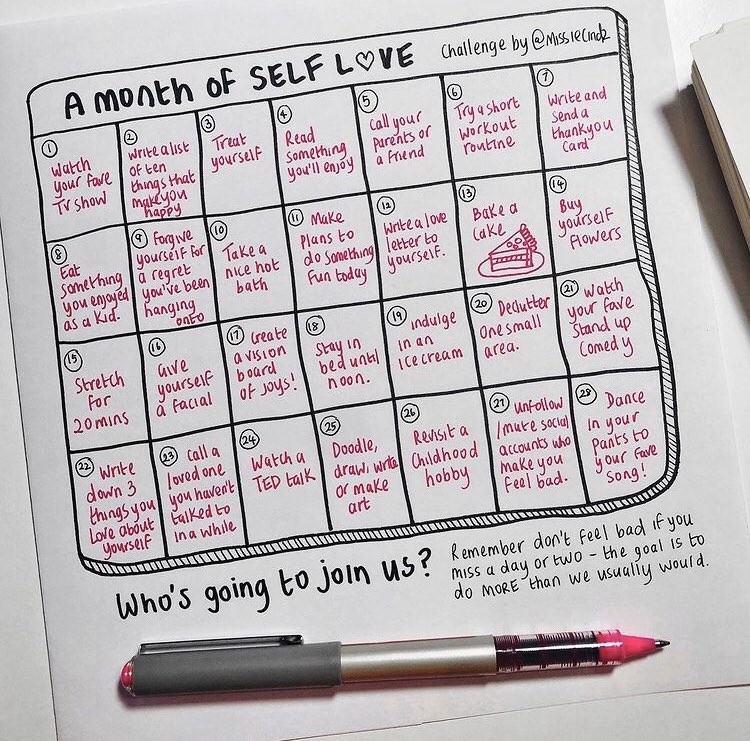 A MONTH OF SELF L♡VE
Challenge by @MissieCindz
1
Watch
your fave
TV show
2
Write a list
of ten
things that
make you
happy
3
Treat
yourself
4
Read
something
you'll enjoy
5
Call your
parents or
a friend
6
Try a short
workout
routine
7
Write and
send a
thankyou
card
8
Eat
something
you enjoyed
as a kid.
9
Forgive
yourself for
a regret
you've been
hanging
onto
10
Take a
nice hot
bath
11
Make
plans to
do something
fun today
12
Write a love
letter to
yourself.
13
Bake a
cake
14
Buy
yourself
flowers
15
Stretch
for
20 mins
16
Give
yourself
a facial
17
Create
a vision
board
of joys!
18
Stay in
bed until
noon.
19
indulge
in an
ice cream
20
Declutter
one small
area.
21
Watch
your fave
stand up
comedy
22
Write
down 3
things you
Love about
yourself
23
Call a
loved one
you haven't
talked to
in a while
24
Watch a
TED talk
25
Doodle,
draw, write
or make
art
26
Revisit a
childhood
hobby
27
unfollow
/mute social
accounts who
make you
feel bad.
28
Dance
in your
pants to
your fave
song!
Who's going to join us?
Remember don't feel bad if you
miss a day or two - the goal is to
do MORE than we usually would.